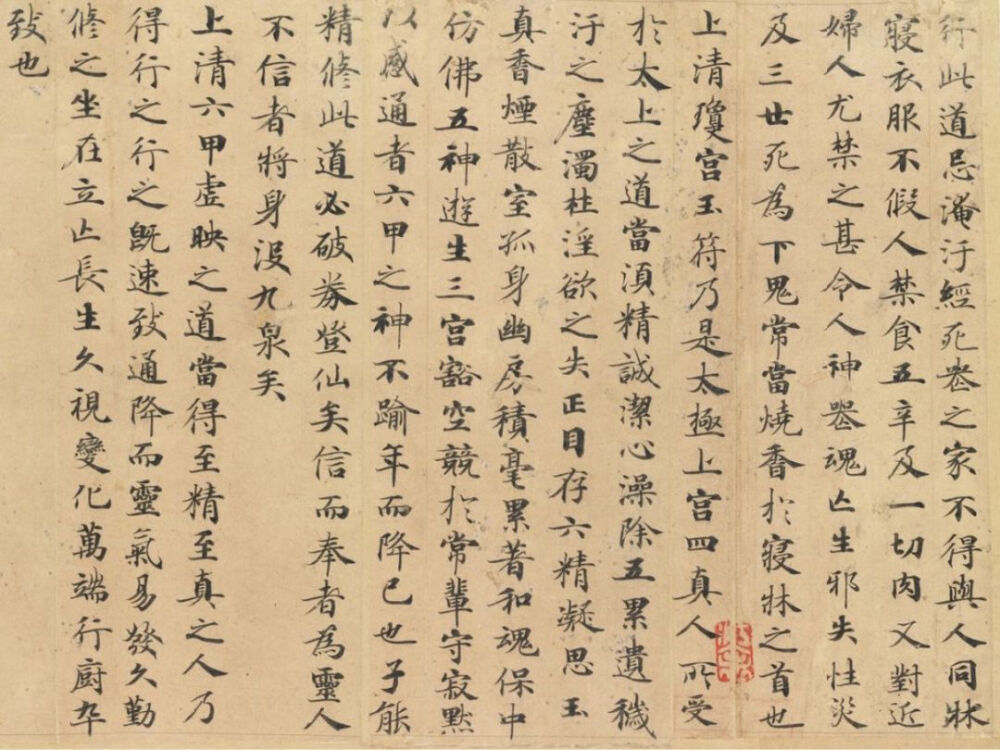 行此道忌淹汙經死丧之家不得與人同牀
寢衣服不假人禁食五辛及一切肉又對近
婦人尤禁之甚令人神喪魂亡生邪失性災
及三世死為下鬼常當燒香於寢牀之首也
上清瓊宮玉符乃是太極上宮四真人所受
於太上之道當須精誠潔心澡除五累遺穢
汙之塵濁杜淫欲之失正目存六精凝思玉
真香煙散室孤身幽房積毫累著和魂保中
仿佛五神遊生三宮豁空競於常輩守寂默
以感通者六甲之神不踰年而降已也子能
精修此道必破券登仙矣信而奉者為靈人
不信者將身沒九泉矣
上清六甲虛映之道當得至精至真之人乃
得行之行之既速致通降而靈氣易發久勤
修之坐在立亡長生久視變化萬端行廚卒
致也